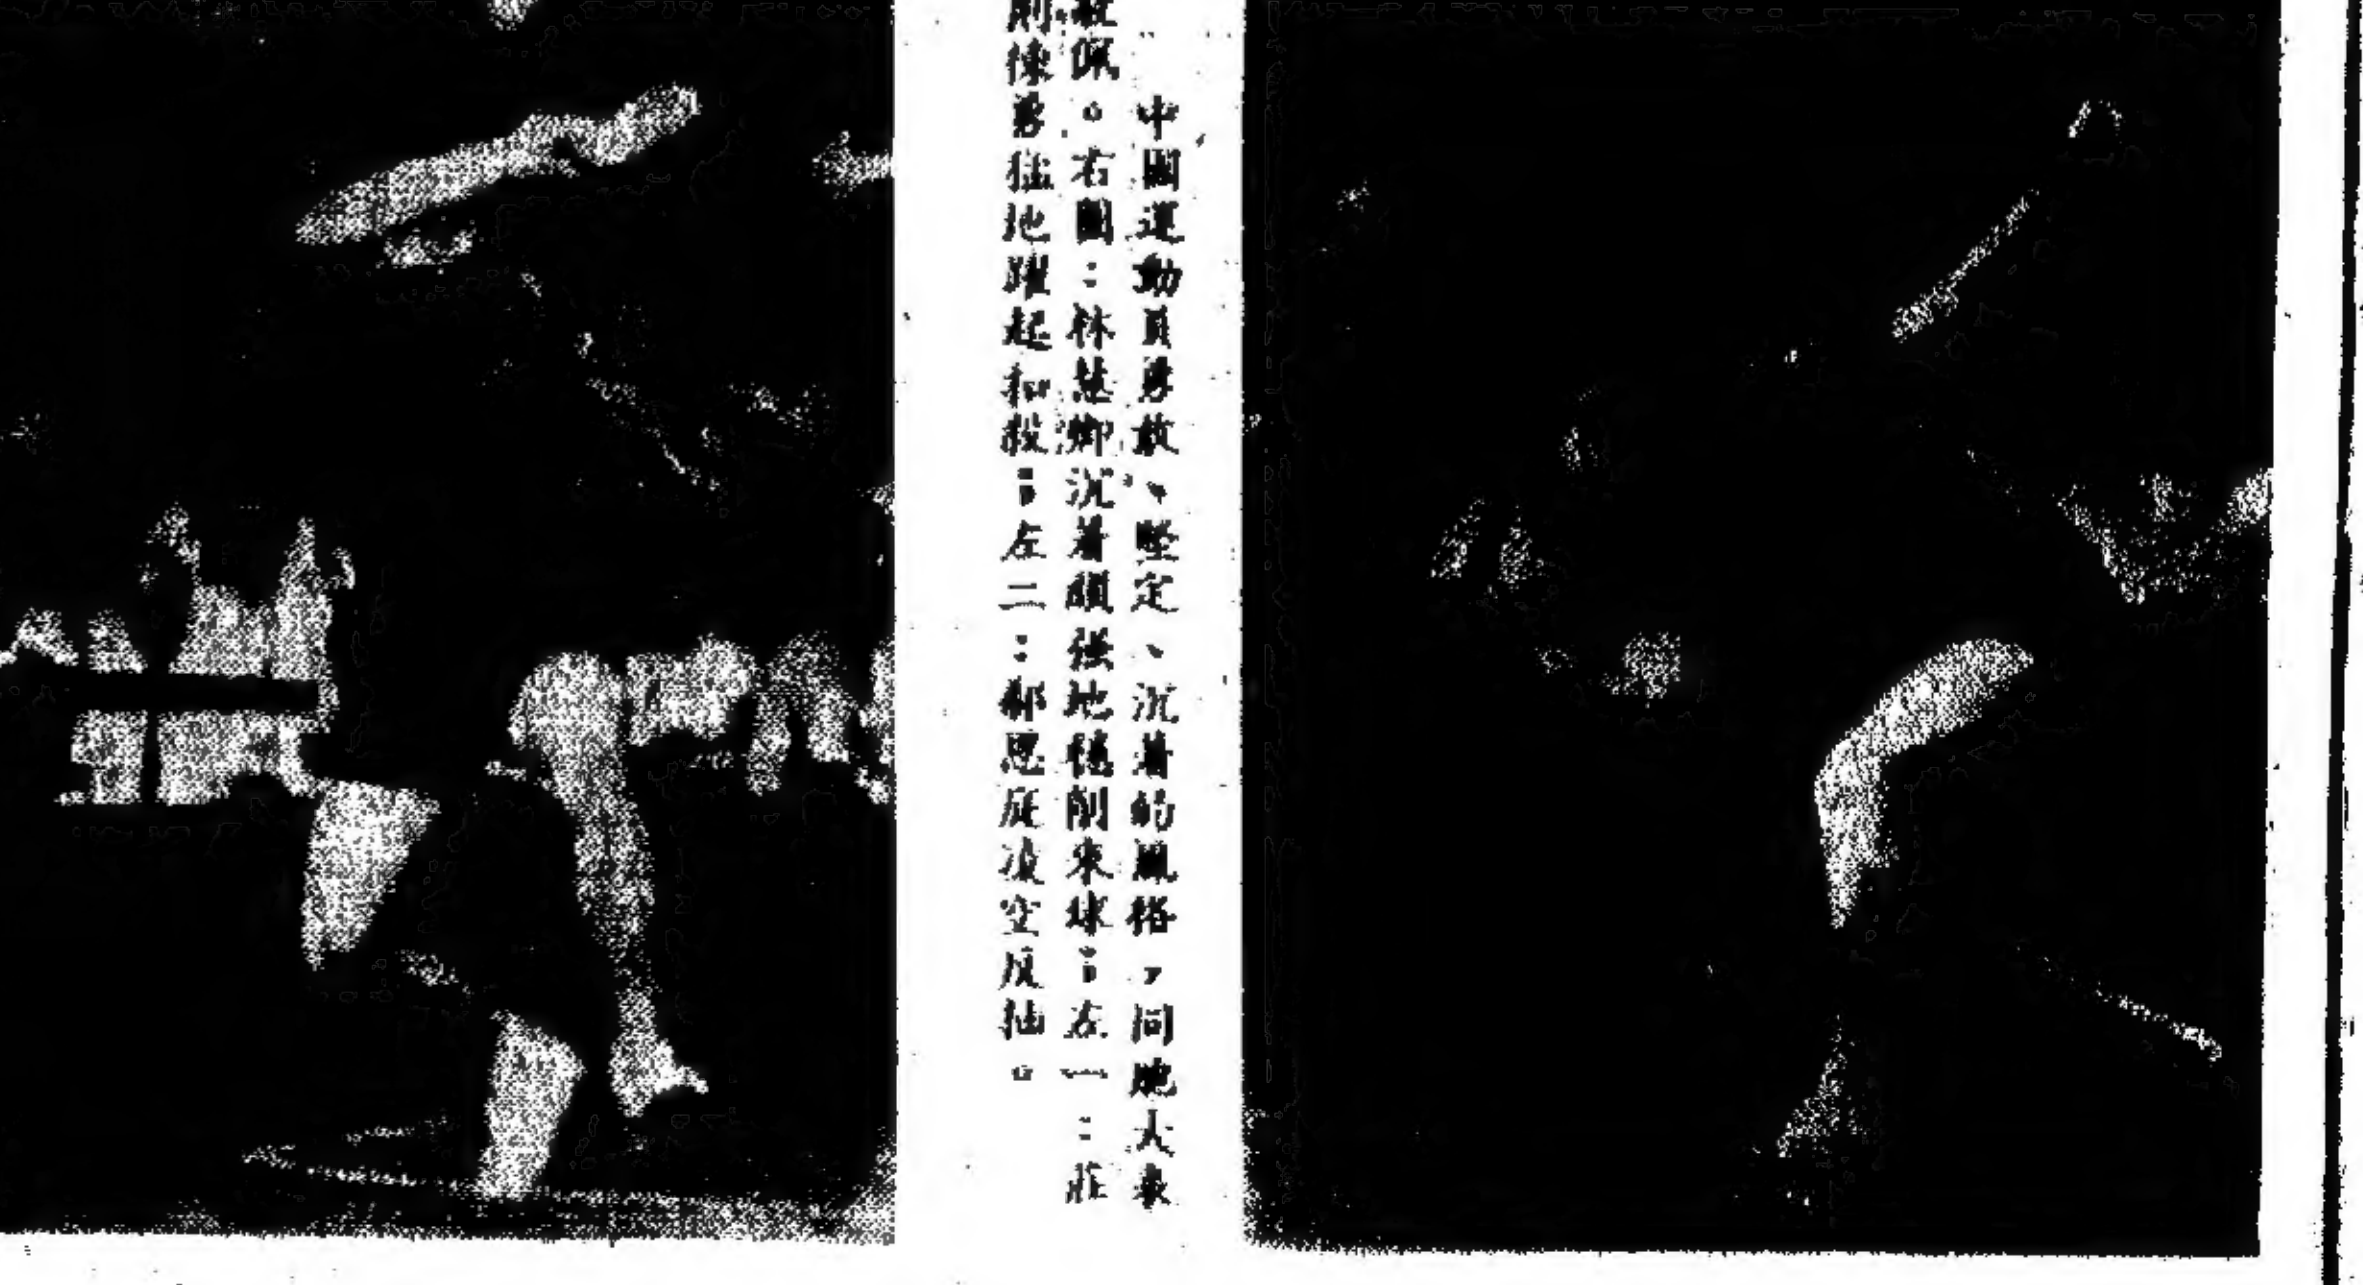 中國運動員勇敢、堅定、沉着的風格，同
佩。右圖：林慧卿沉着頑强地穩削來球；左一：莊
則棟勇猛地躍起扣殺；左二：郗恩庭凌空反抽。